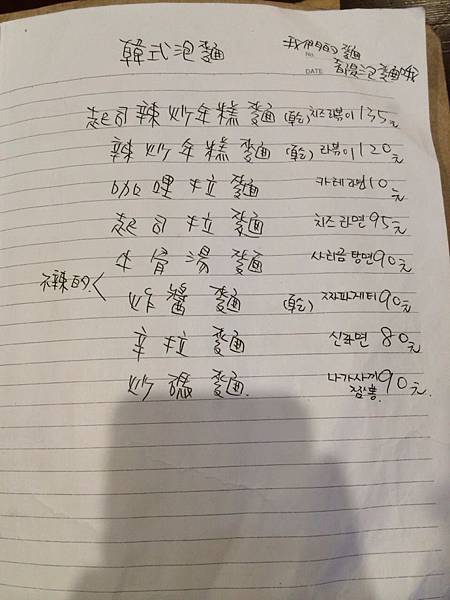 韓式泡麵
我們的麵
No.
DATE
都是泡麵哦
起司辣炒年糕麵(乾) 치즈라볶이 135元
辣炒年糕麵(乾) 라볶이 120元
咖哩拉麵 카레라면 10元
起司拉麵 치즈라면 95元
牛骨湯麵 사리곰탕면 90元
不辣的<
炸醬麵(乾) 짜파게티 90元
辛拉麵 신라면 80元
炒碼麵 나가사끼 짬뽕 90元